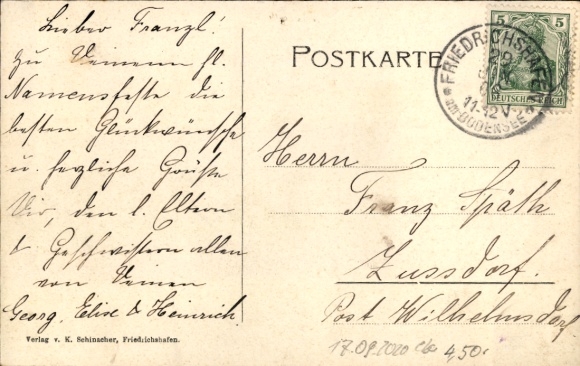 Lieber Franzl!
Zu Deinem hl.
Namensfeste die
besten Glückwünsche
u. herzliche Grüße
Dir, den l. Eltern
& Geschwistern allen
von Deinen
Georg, Elise & Heinrich.
Verlag v. K. Schinacher, Friedrichshafen.
POSTKARTE
FRIEDRICHSHAFEN
29
11-12 V.
BODENSEE
5 5
DEUTSCHES REICH
Herrn
Franz Späth
Zussdorf.
Post Wilhelmsdorf
17.09.2020
4,50.